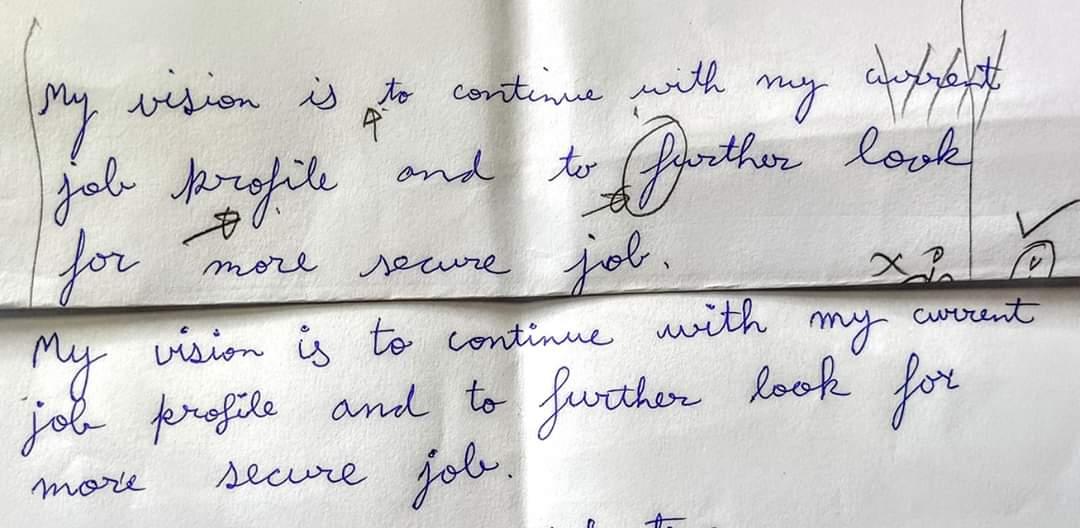 My vision is to continue with my current
job profile and to further look
for more secure job.
My vision is to continue with my current
job profile and to further look for
more secure job.